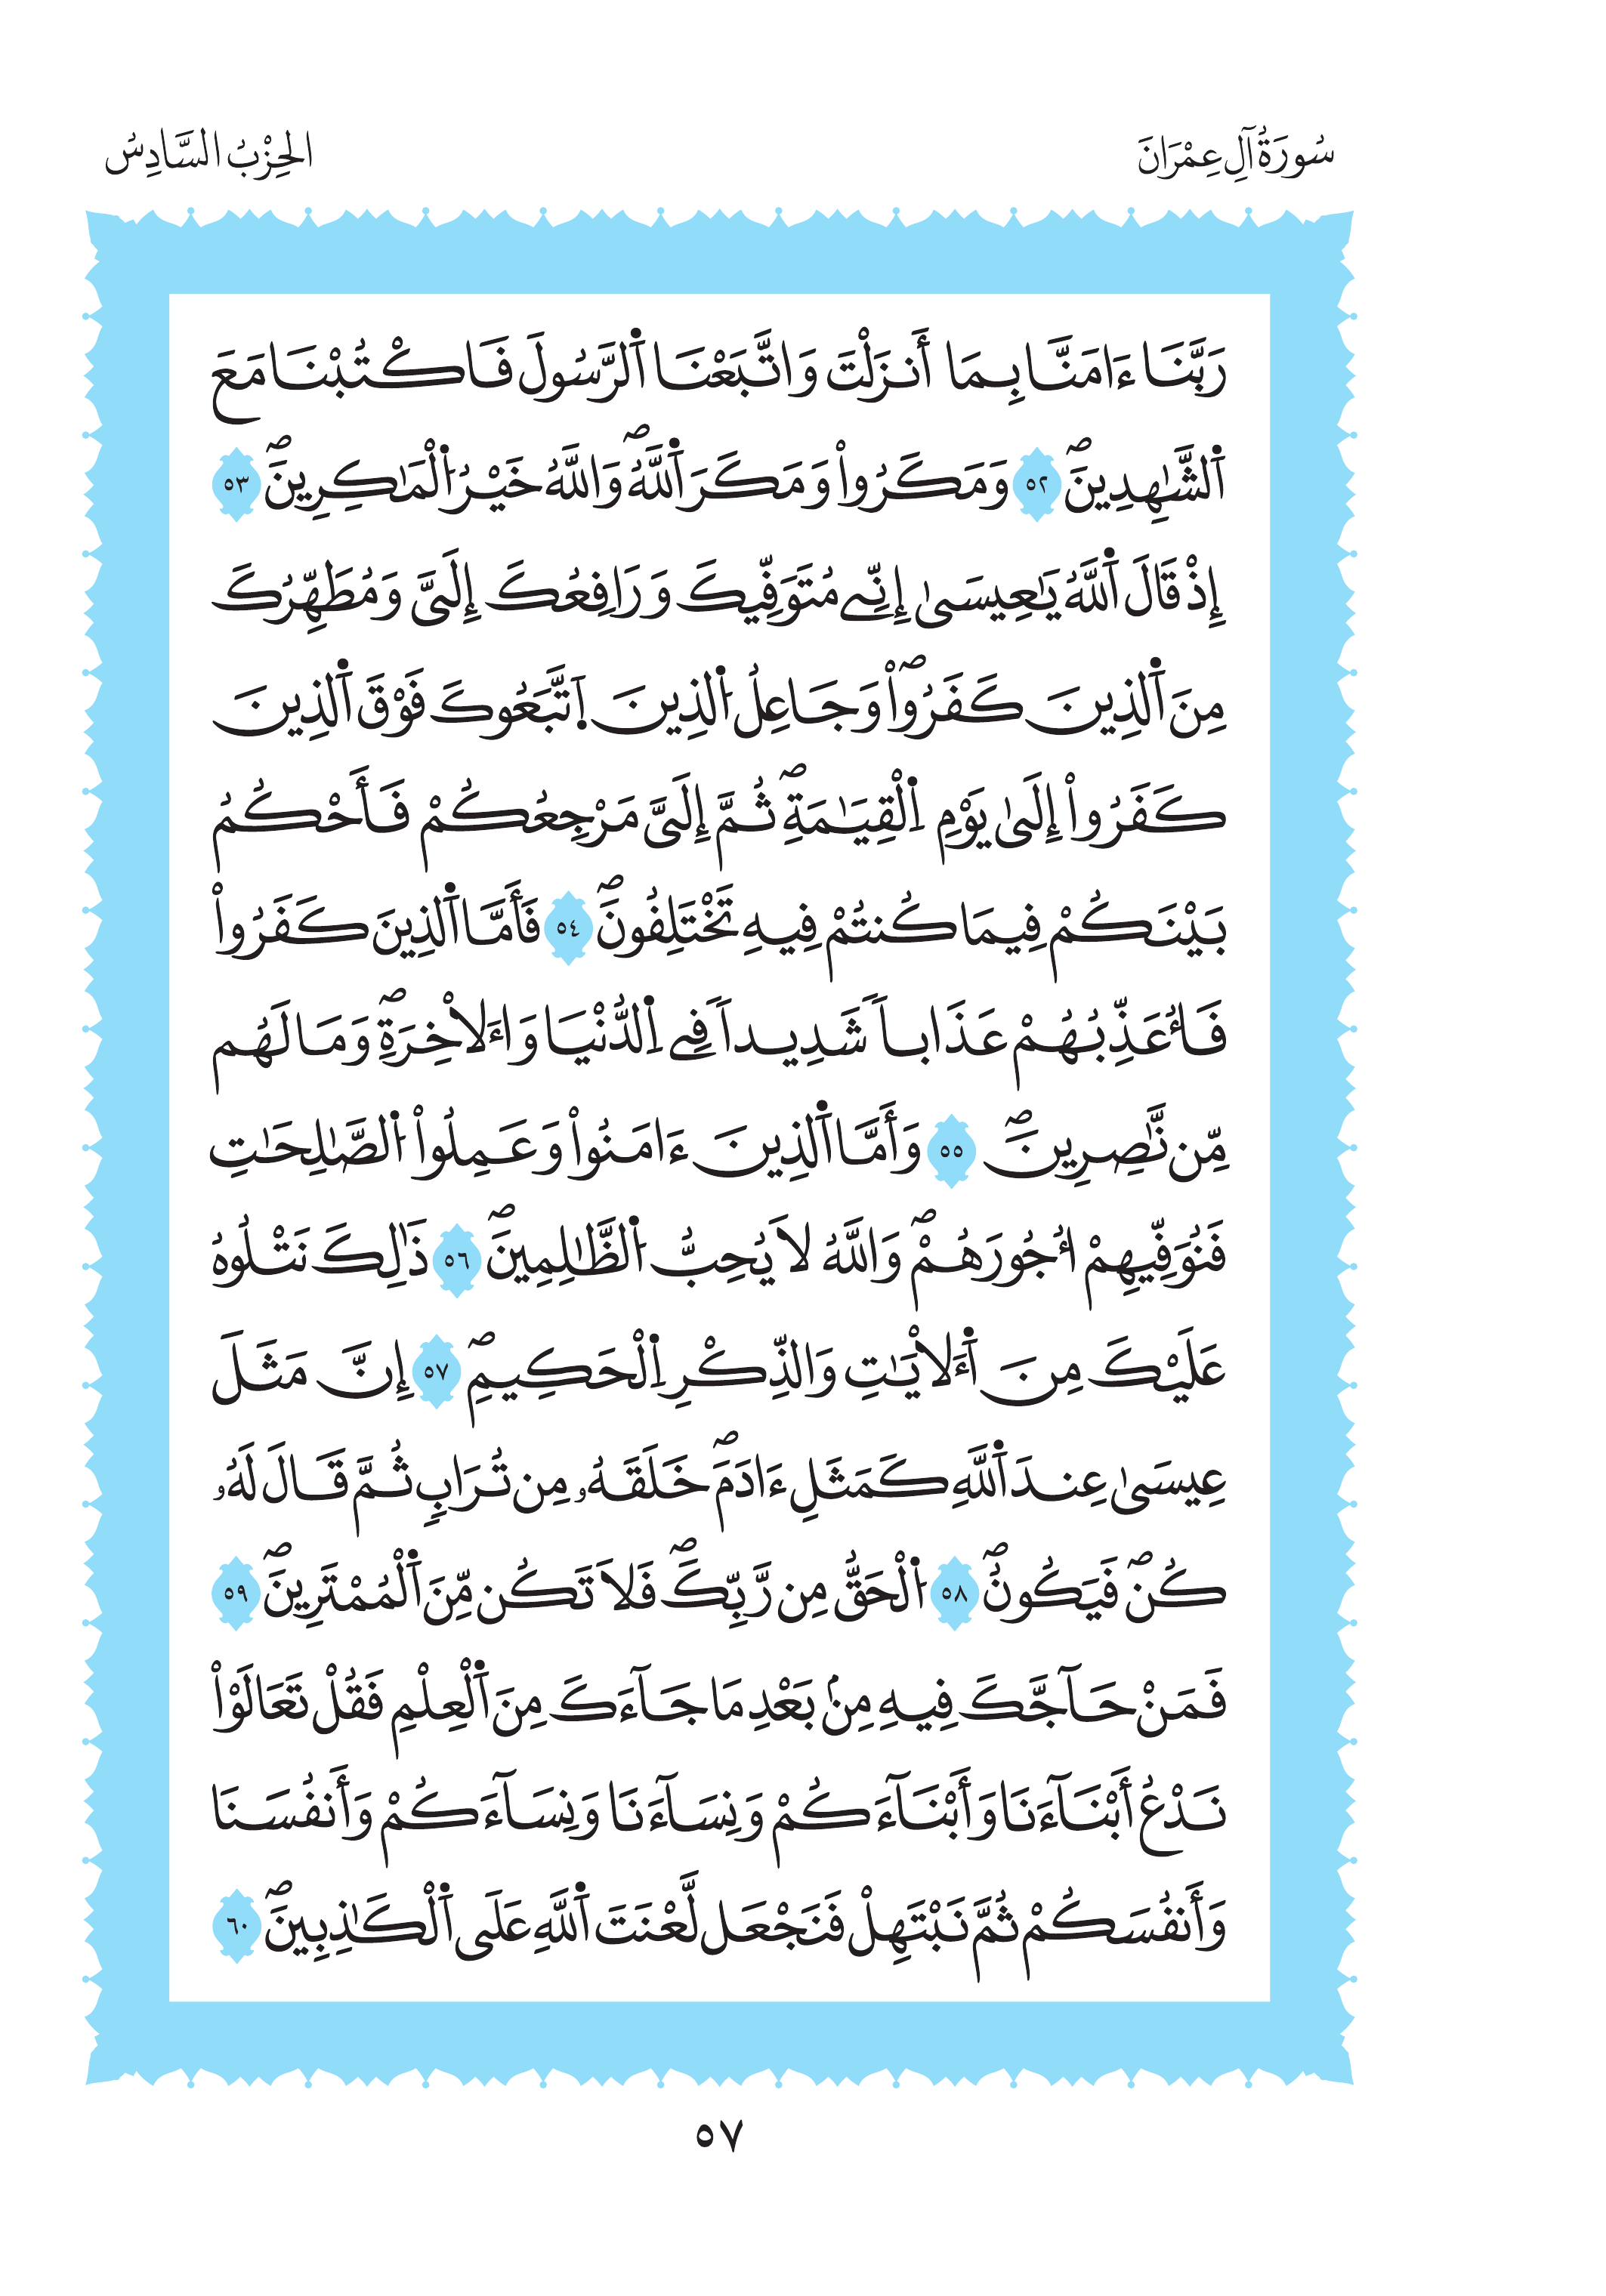 سُورَةُ آلِ عِمْرَانَ
الحِزْبُ السَّادِسُ
رَبَّنَا ءَامَنَّا بِمَا أَنزَلْتَ وَاتَّبَعْنَا اَ۬لرَّسُولَ فَاكْتُبْنَا مَعَ
اَ۬لشَّٰهِدِينَۖ ٥٢ وَمَكَرُواْ وَمَكَرَ اَ۬للَّهُۖ وَاللَّهُ خَيْرُ اُ۬لْمَٰكِرِينَۖ ٥٣
إِذْ قَالَ اَ۬للَّهُ يَٰعِيسَىٰ إِنِّے مُتَوَفِّيكَ وَرَافِعُكَ إِلَىَّ وَمُطَهِّرُكَ
مِنَ اَ۬لذِينَ كَفَرُواْۖ وَجَاعِلُ اُ۬لذِينَ اَ۪تَّبَعُوكَ فَوْقَ اَ۬لذِينَ
كَفَرُواْ إِلَىٰ يَوْمِ اِ۬لْقِيَٰمَةِۖ ثُمَّ إِلَىَّ مَرْجِعُكُمْ فَأَحْكُمُ
بَيْنَكُمْ فِيمَا كُنتُمْ فِيهِ تَخْتَلِفُونَۖ ٥٤ فَأَمَّا اَ۬لذِينَ كَفَرُواْ
فَأُعَذِّبُهُمْ عَذَاباٗ شَدِيداٗ فِے اِ۬لدُّنْيَا وَالَاخِرَةِۖ وَمَا لَهُم
مِّن نَّٰصِرِينَۖ ٥٥ وَأَمَّا اَ۬لذِينَ ءَامَنُواْ وَعَمِلُواْ اُ۬لصَّٰلِحَٰتِ
فَنُوَفِّيهِمْ أُجُورَهُمْۖ وَاللَّهُ لَا يُحِبُّ اُ۬لظَّٰلِمِينَۖ ٥٦ ذَٰلِكَ نَتْلُوهُ
عَلَيْكَ مِنَ اَ۬لَايَٰتِ وَالذِّكْرِ اِ۬لْحَكِيمِۖ ٥٧ إِنَّ مَثَلَ
عِيسَىٰ عِندَ اَ۬للَّهِ كَمَثَلِ ءَادَمَۖ خَلَقَهُۥ مِن تُرَابٖ ثُمَّ قَالَ لَهُۥ
كُنۖ فَيَكُونُۖ ٥٨ اُ۬لْحَقُّ مِن رَّبِّكَۖ فَلَا تَكُن مِّنَ اَ۬لْمُمْتَرِينَۖ ٥٩
فَمَنْ حَآجَّكَ فِيهِ مِنۢ بَعْدِ مَا جَآءَكَ مِنَ اَ۬لْعِلْمِ فَقُلْ تَعَالَوْاْ
نَدْعُ أَبْنَآءَنَا وَأَبْنَآءَكُمْ وَنِسَآءَنَا وَنِسَآءَكُمْ وَأَنفُسَنَا
وَأَنفُسَكُمْ ثُمَّ نَبْتَهِلْ فَنَجْعَل لَّعْنَتَ اَ۬للَّهِ عَلَى اَ۬لْكَٰذِبِينَۖ ٦٠
٥٧